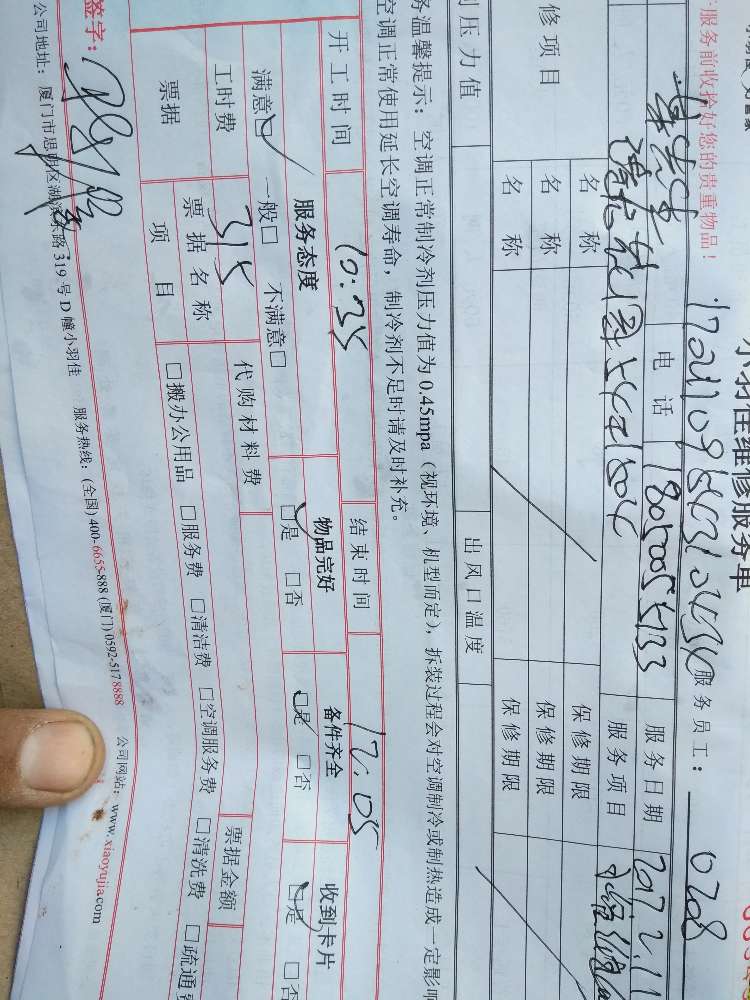 小羽佳维修服务单
服务员工： 0708
服务前收拾好您的贵重物品！
电话 服务日期
服务项目
修项目 名称 保修期限
名称 保修期限
名称 保修期限
压力值 出风口温度
务温馨提示：空调正常制冷剂压力值为0.45mpa（视环境、机型而定），拆装过程会对空调制冷或制热造成一定影响
空调正常使用延长空调寿命，制冷剂不足时请及时补充。
开工时间 10:35 结束时间 12:05
服务态度 物品完好 备件齐全 收到卡片
满意☑ 一般□ 不满意□ ☑是 □否 ☑是 □否 ☑是 □否
工时费 315 代购材料费
票据 票据名称 票据金额
项目 □搬办公用品 □服务费 □清洁费 □空调服务费 □清洗费 □疏通
签字：
公司地址：厦门市思明区 路319号D幢小羽佳 服务热线：(全国)400-6655-888 (厦门)0592-5178888 公司网站：www.xiaoyujia.com